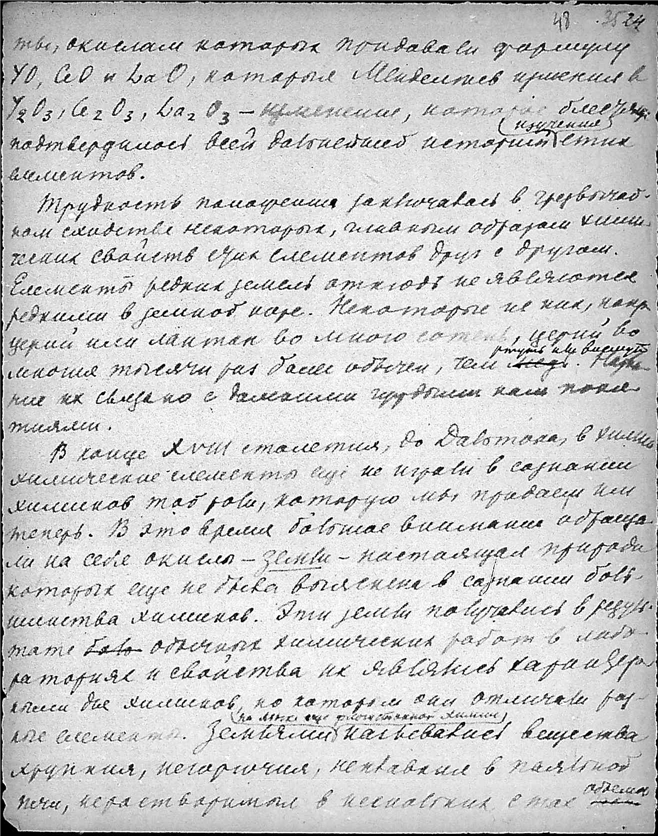 48 3524
ты, окислам которых придавали формулу
YO, CeO и LaO, которыя Менделеев изменил в
Y2O3, Ce2O3, La2O3 – изменение, которое
(изучения)
подтвердилось всей дальнейшей историей етих
елементов.
Трудность положения заключалась в чрезвычай-
ном сходстве некоторых, главным образом хими-
ческих свойств етих елементов друг с другом.
Елементы редких земель отнюдь не являются
редкими в земной коре. Некоторые из них, напр
церий или лантан во много сотень, церий во
ртуть или висмут
многия тысячи раз более обычен, чем
их связано с далекими чуждыми нам поня
тиями.
В конце XVIII столетия, до Дальтона, в химии
химические елементы еще не играли в сознании
химиков той роли, которую мы придаем им
теперь. В это время большое внимание обраща
ли на себя окислы – земли – настоящая природа
которых еще не была выяснена в сознании боль-
шинства химиков. Эти земли получались в резуль
тате обычных химических работ в лабо
раториях и свойства их являлись характер
ными для химиков, по которым они отличали раз-
(на языке еще флогистонной химии)
ные елементы. Землями назывались вещества
хрупкия, негорючия, неплавкия в паяльной
объемах
печи, нерастворимыя в нескольких стах